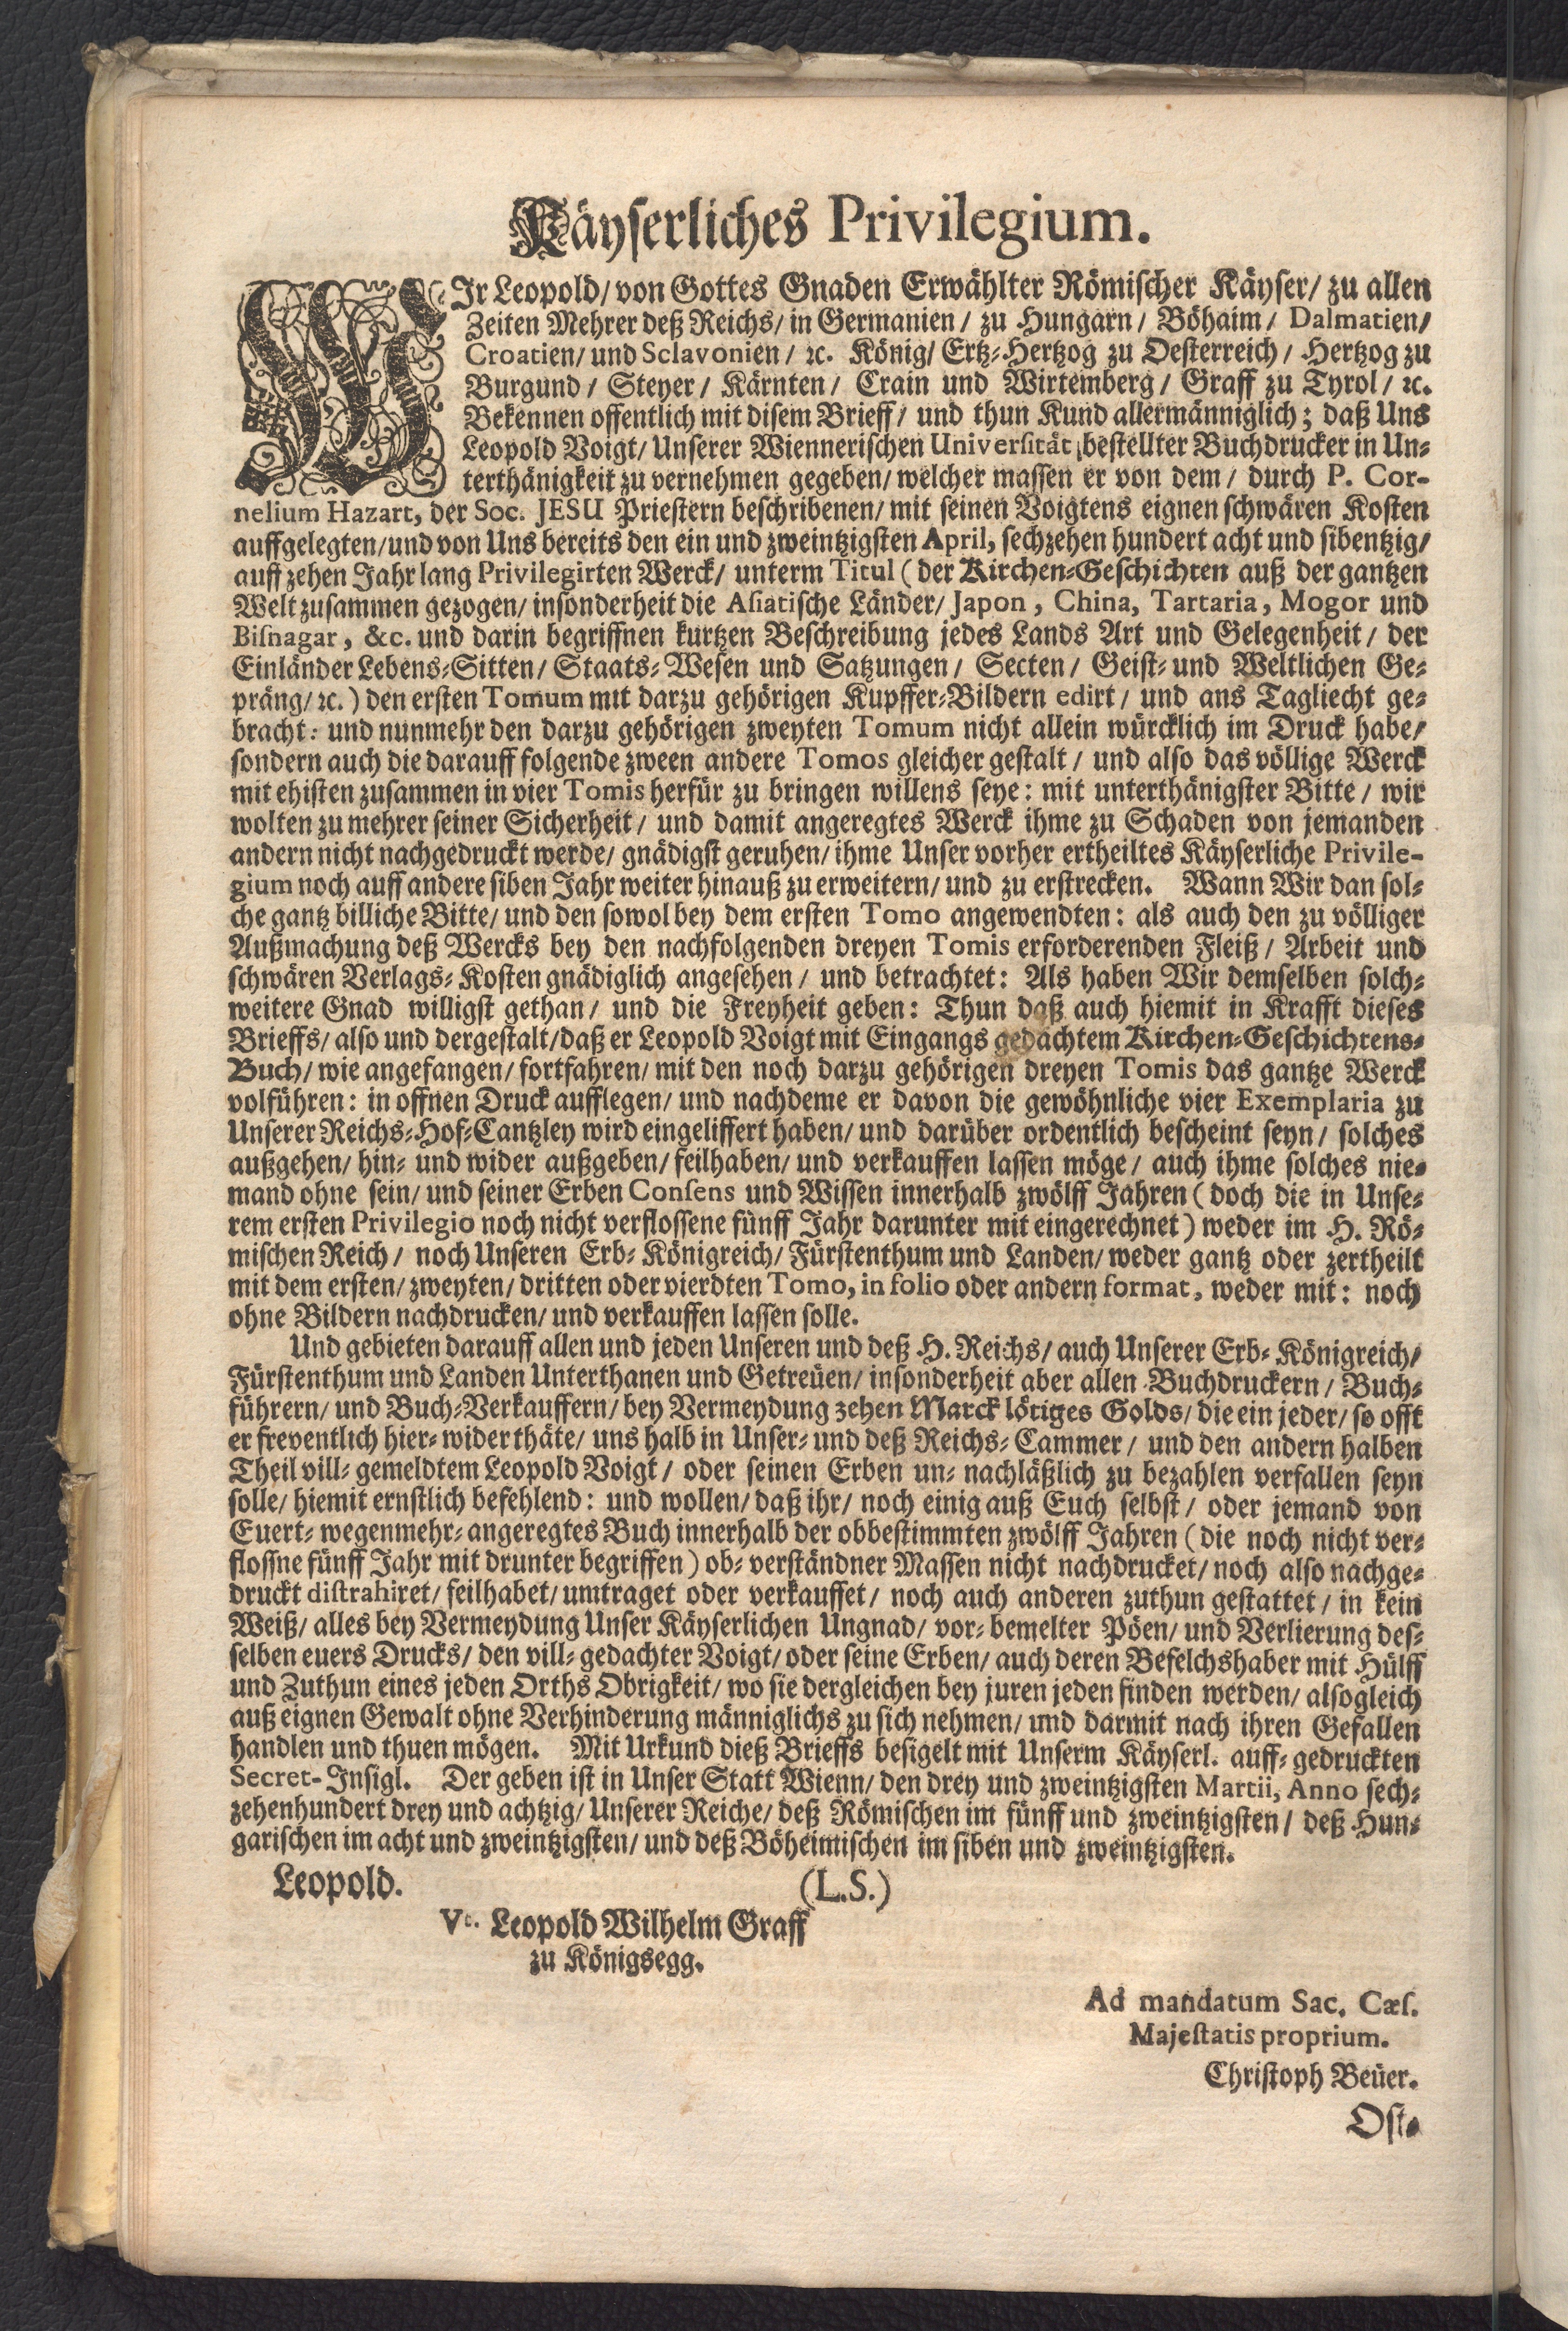 Käyserliches Privilegium.
WIr Leopold/ von Gottes Gnaden Erwählter Römischer Käyser/ zu allen
Zeiten Mehrer deß Reichs/ in Germanien/ zu Hungarn/ Böhaim/ Dalmatien/
Croatien/ und Sclavonien/ ꝛc. König/ Ertz-Hertzog zu Oesterreich/ Hertzog zu
Burgund/ Steyer/ Kärnten/ Crain und Wirtemberg/ Graff zu Tyrol/ ꝛc.
Bekennen offentlich mit disem Brieff/ und thun Kund allermänniglich; daß Uns
Leopold Voigt/ Unserer Wiennerischen Universität bestellter Buchdrucker in Un-
terthänigkeit zu vernehmen gegeben/ welcher massen er von dem/ durch P. Cor-
nelium Hazart, der Soc. JESU Priestern beschribenen/ mit seinen Voigtens eignen schwären Kosten
auffgelegten/ und von Uns bereits den ein und zweintzigsten April, sechzehen hundert acht und sibentzig/
auff zehen Jahr lang Privilegirten Werck/ unterm Titul (der Kirchen-Geschichten auß der gantzen
Welt zusammen gezogen/ insonderheit die Asiatische Länder/ Japon, China, Tartaria, Mogor und
Bisnagar, &c. und darin begriffnen kurtzen Beschreibung jedes Lands Art und Gelegenheit/ der
Einländer Lebens-Sitten/ Staats-Wesen und Satzungen/ Secten/ Geist- und Weltlichen Ge-
präng/ ꝛc.) den ersten Tomum mit darzu gehörigen Kupffer-Bildern edirt/ und ans Tagliecht ge-
bracht: und nunmehr den darzu gehörigen zweyten Tomum nicht allein würcklich im Druck habe/
sondern auch die darauff folgende zween andere Tomos gleicher gestalt/ und also das völlige Werck
mit ehisten zusammen in vier Tomis herfür zu bringen willens seye: mit unterthänigster Bitte/ wir
wolten zu mehrer seiner Sicherheit/ und damit angeregtes Werck ihme zu Schaden von jemanden
andern nicht nachgedruckt werde/ gnädigst geruhen/ ihme Unser vorher ertheiltes Käyserliche Privile-
gium noch auff andere siben Jahr weiter hinauß zu erweitern/ und zu erstrecken. Wann Wir dan sol-
che gantz billiche Bitte/ und den sowol bey dem ersten Tomo angewendten: als auch den zu völliger
Außmachung deß Wercks bey den nachfolgenden dreyen Tomis erforderenden Fleiß/ Arbeit und
schwären Verlags-Kosten gnädiglich angesehen/ und betrachtet: Als haben Wir demselben solch-
weitere Gnad willigst gethan/ und die Freyheit geben: Thun daß auch hiemit in Krafft dieses
Brieffs/ also und dergestalt/ daß er Leopold Voigt mit Eingangs gedachtem Kirchen-Geschichtens-
Buch/ wie angefangen/ fortfahren/ mit den noch darzu gehörigen dreyen Tomis das gantze Werck
volführen: in offnen Druck aufflegen/ und nachdeme er davon die gewöhnliche vier Exemplaria zu
Unserer Reichs-Hof-Cantzley wird eingeliffert haben/ und darüber ordentlich bescheint seyn/ solches
außgehen/ hin- und wider außgeben/ feilhaben/ und verkauffen lassen möge/ auch ihme solches nie-
mand ohne sein/ und seiner Erben Consens und Wissen innerhalb zwölff Jahren (doch die in Unse-
rem ersten Privilegio noch nicht verflossene fünff Jahr darunter mit eingerechnet) weder im H. Rö-
mischen Reich/ noch Unseren Erb-Königreich/ Fürstenthum und Landen/ weder gantz oder zertheilt
mit dem ersten/ zweyten/ dritten oder vierdten Tomo, in folio oder andern format, weder mit: noch
ohne Bildern nachdrucken/ und verkauffen lassen solle.
Und gebieten darauff allen und jeden Unseren und deß H. Reichs/ auch Unserer Erb-Königreich/
Fürstenthum und Landen Unterthanen und Getreüen/ insonderheit aber allen Buchdruckern/ Buch-
führern/ und Buch-Verkauffern/ bey Vermeydung zehen Marck lötiges Golds/ die ein jeder/ so offt
er freventlich hier-wider thäte/ uns halb in Unser- und deß Reichs-Cammer/ und den andern halben
Theil vill-gemeldtem Leopold Voigt/ oder seinen Erben un-nachläßlich zu bezahlen verfallen seyn
solle/ hiemit ernstlich befehlend: und wollen/ daß ihr/ noch einig auß Euch selbst/ oder jemand von
Euert-wegen mehr-angeregtes Buch innerhalb der obbestimmten zwölff Jahren (die noch nicht ver-
flossne fünff Jahr mit drunter begriffen) ob-verständner Massen nicht nachdrucket/ noch also nachge-
druckt distrahiret/ feilhabet/ umtraget oder verkauffet/ noch auch anderen zuthun gestattet/ in kein
Weiß/ alles bey Vermeydung Unser Käyserlichen Ungnad/ vor-bemelter Pöen/ und Verlierung des-
selben euers Drucks/ den vill-gedachter Voigt/ oder seine Erben/ auch deren Befelchshaber mit Hülff
und Zuthun eines jeden Orths Obrigkeit/ wo sie dergleichen bey juren jeden finden werden/ alsogleich
auß eignen Gewalt ohne Verhinderung männiglichs zu sich nehmen/ und darmit nach ihren Gefallen
handlen und thuen mögen. Mit Urkund dieß Brieffs besigelt mit Unserm Käyserl. auff-gedruckten
Secret-Insigl. Der geben ist in Unser Statt Wienn/ den drey und zweintzigsten Martii, Anno sech-
zehenhundert drey und achtzig/ Unserer Reiche/ deß Römischen im fünff und zweintzigsten/ deß Hun-
garischen im acht und zweintzigsten/ und deß Böheimischen im siben und zweintzigsten.
Leopold. (L.S.)
Vt. Leopold Wilhelm Graff
zu Königsegg.
Ad mandatum Sac. Cæs.
Majestatis proprium.
Christoph Beüer.
Ost-